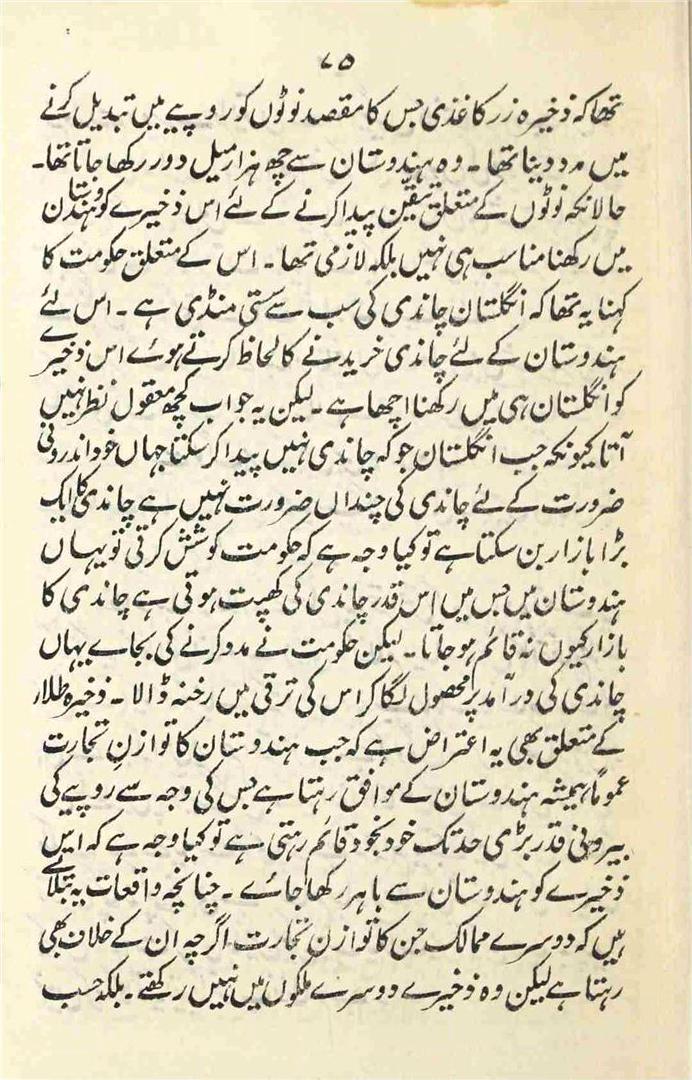 ۷۵
تھا کہ ذخیرہ زر کاغذی جس کا مقصد نوٹوں کو روپیے میں تبدیل کرنے
میں مدد دینا تھا ۔ وہ ہندوستان سے چھ ہزار میل دور رکھا جاتا تھا۔
حالانکہ نوٹوں کے متعلق تیقّن پیدا کرنے کے لئے اس ذخیرے کو ہندوستان
میں رکھنا مناسب ہی نہیں بلکہ لازمی تھا ۔ اس کے متعلق حکومت کا
کہنا یہ تھا کہ انگلستان چاندی کی سب سے سستی منڈی ہے ۔ اس لئے
ہندوستان کے لئے چاندی خریدنے کا لحاظ کرتے ہوئے اس ذخیرے
کو انگلستان ہی میں رکھنا اچھا ہے ۔ لیکن یہ جواب کچھ معقول نظر نہیں
آتا کیونکہ جب انگلستان جو کہ چاندی نہیں پیدا کر سکتا جہاں خود اندرونی
ضرورت کے لئے چاندی کی چنداں ضرورت نہیں ہے چاندی کا ایک
بڑا بازار بن سکتا ہے تو کیا وجہ ہے کہ حکومت کوشش کرتی تو یہاں
ہندوستان میں جس میں اس قدر چاندی کی کھپت ہوتی ہے چاندی کا
بازار کیوں نہ قائم ہو جاتا ۔ لیکن حکومت نے مدد کرنے کی بجائے یہاں
چاندی کی درآمد پر محصول لگا کر اس کی ترقی میں رخنہ ڈالا ۔ ذخیرہ طلاء
کے متعلق بھی یہ اعتراض ہے کہ جب ہندوستان کا توازنِ تجارت
عموماً ہمیشہ ہندوستان کے موافق رہتا ہے جس کی وجہ سے روپیے کی
بیرونی قدر بڑی حد تک خود بخود قائم رہتی ہے تو کیا وجہ ہے کہ اس
ذخیرے کو ہندوستان سے باہر رکھا جائے ۔ چنانچہ واقعات یہ بتلاتے
ہیں کہ دوسرے ممالک جن کا توازن تجارت اگرچہ ان کے خلاف بھی
رہتا ہے لیکن وہ ذخیرے دوسرے ملکوں میں نہیں رکھتے ۔ بلکہ حسب